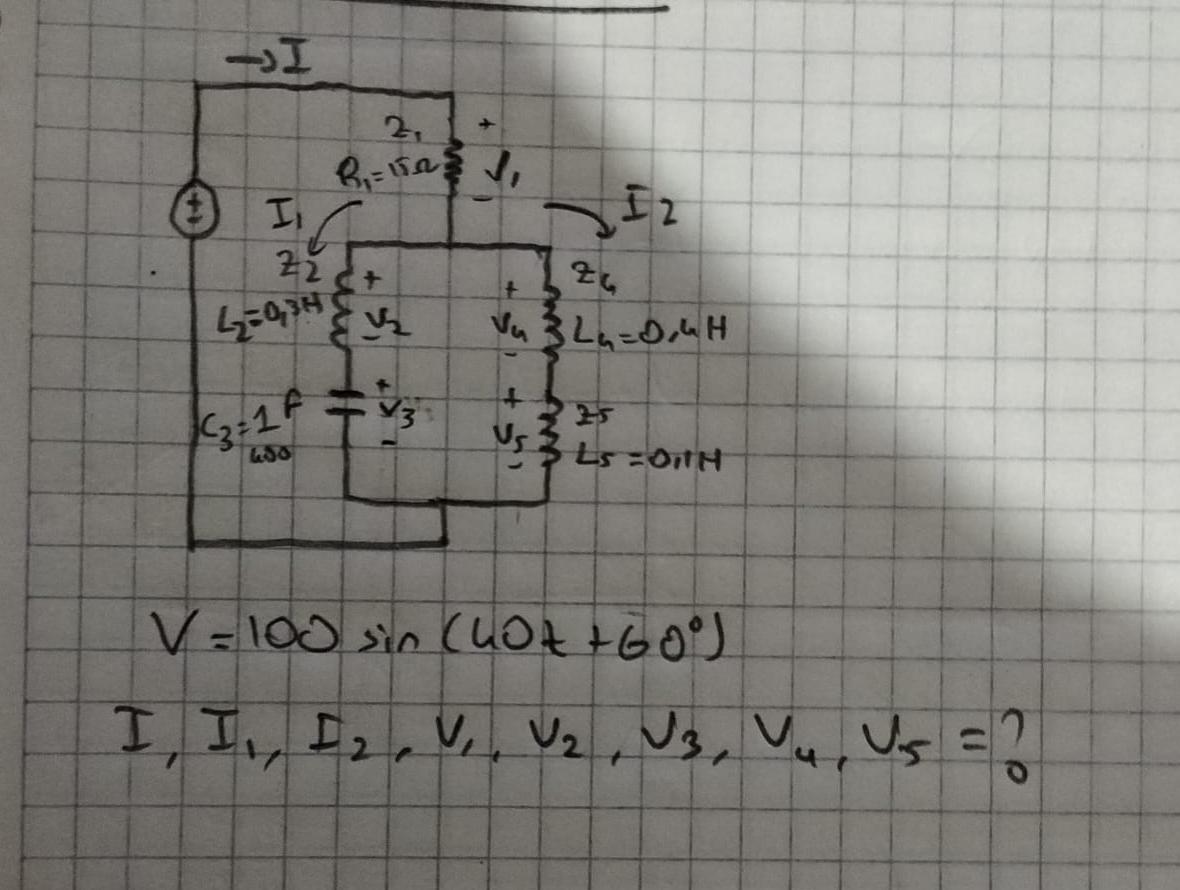 →I
Z₁ +
R₁=15Ω V₁
-
I₁ I2
Z2 + + Z4
L2=0,3H V2 V4 L4=0,4H
- -
C3=1/400 F + V3 - + V5 - Z5
L5=0,1H
V=100 sin (40t+60°)
I, I₁, I2, V₁, V2, V3, V4, V5 =?